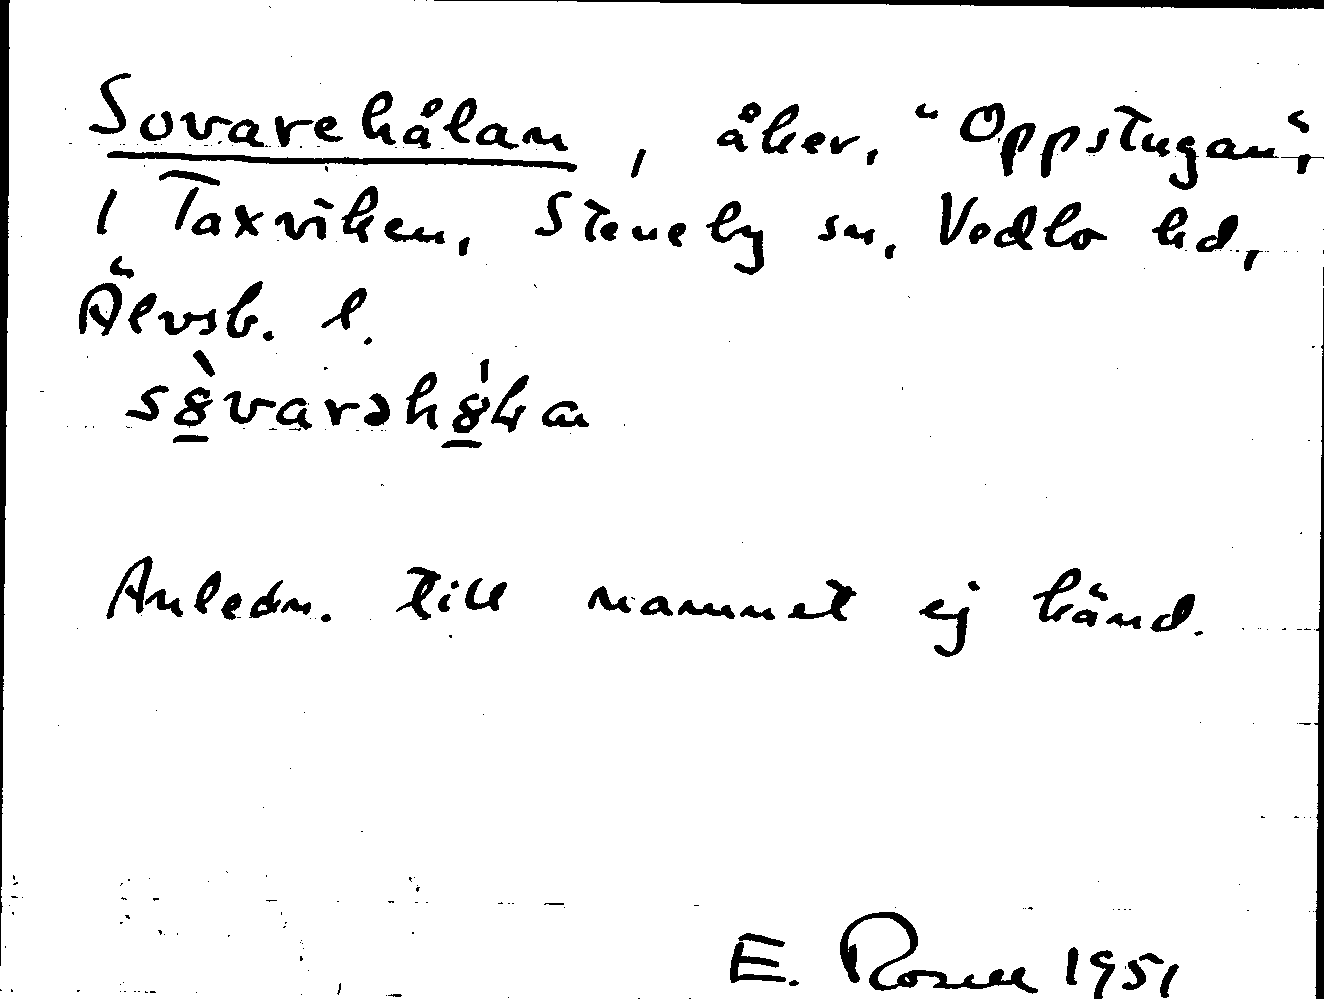 Sovarehålan, åker, "Oppstugan",
1 Taxviken, Steneby sn, Vedbo hd,
Älvsb. l.
Anledn. till namnet ej känd.
E. Rosell 1951